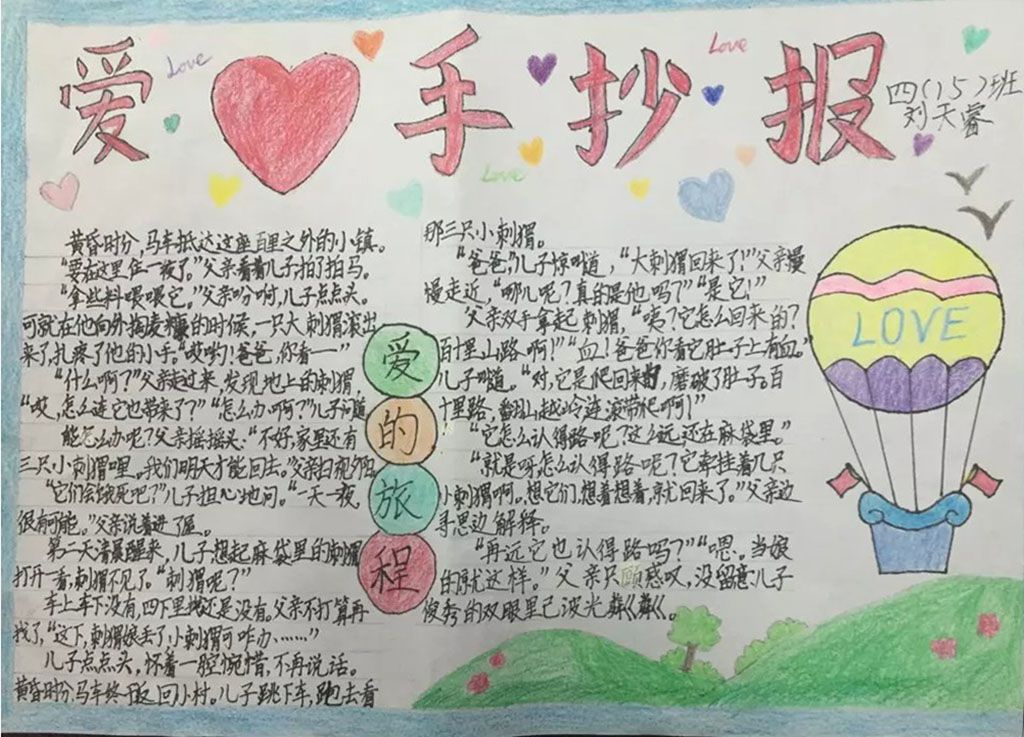 爱 手抄报
Love
Love
Love
四(15)班
刘天睿
黄昏时分,马车抵达这座百里之外的小镇。
“要在这里住一夜了。”父亲看着儿子拍了拍马。
“拿些料喂喂它。”父亲吩咐,儿子点点头。
可就在他向外掏麦糠的时候,一只大刺猬滚出
来了,扎疼了他的小手。“哎哟!爸爸,你看——”
“什么啊?”父亲走过来,发现地上的刺猬,
“哎,怎么连它也带来了?”“怎么办啊?”儿子问道
能怎么办呢?父亲摇摇头:“不好,家里还有
三只小刺猬哩。我们明天才能回去。”父亲扫视夕阳
“它们会饿死吧?”儿子担心地问。“一天一夜,
很有可能。”父亲说着进了屋。
第二天清晨醒来,儿子想起麻袋里的刺猬
打开一看,刺猬不见了。“刺猬呢?”
车上车下没有,四下里找还是没有。父亲不打算再
找了,“这下,刺猬娘丢了,小刺猬可咋办……”
儿子点点头,怀着一腔惋惜,不再说话。
黄昏时分,马车终于返回小村。儿子跳下车,跑去看
爱的旅程
那三只小刺猬。
“爸爸”,儿子惊叫道,“大刺猬回来了!”父亲慢
慢走近,“哪儿呢?真的是他吗?”“是它!”
父亲双手拿起刺猬,“咦?它怎么回来的?
百十里山路啊!”“血!爸爸你看它肚子上有血。”
儿子叫道。“对,它是爬回来的,磨破了肚子。百
十里路,翻山越岭连滚带爬啊!”
“它怎么认得路呢?这么远,还在麻袋里。”
“就是呀怎么认得路呢?它牵挂着几只
小刺猬啊。想它们,想着想着,就回来了。”父亲边
寻思边解释。
“再远它也认得路吗?”“嗯。当娘
的就这样。”父亲只顾感叹,没留意儿子
俊秀的双眼里已波光粼粼。
LOVE